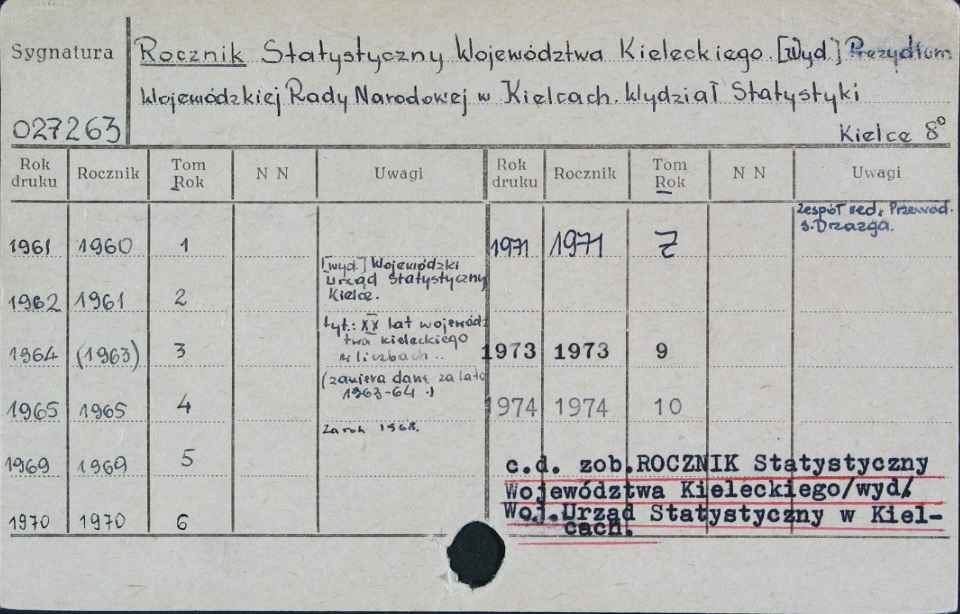 Sygnatura
027263
Rocznik Statystyczny Województwa Kieleckiego. [Wyd.] Prezydium
Wojewódzkiej Rady Narodowej w Kielcach. Wydział Statystyki
Kielce 8°
Rok druku Rocznik Tom Rok N N Uwagi Rok druku Rocznik Tom Rok N N Uwagi
1961 1960 1
[wyd.] Wojewódzki
Urząd Statystyczny
Kielce.
1962 1961 2
tyt.: XX lat wojewódz
twa kieleckiego
w liczbach..
1964 (1963) 3
(zawiera dane za lata
1963-64.)
1965 1965 4
Za rok 1968.
1969 1969 5
1970 1970 6
Zespół red. Przewod.
S. Drzazga.
1971 1971 7
1973 1973 9
1974 1974 10
c.d. zob. ROCZNIK Statystyczny
Województwa Kieleckiego/wyd/.
Woj.Urząd Statystyczny w Kiel-
cach.